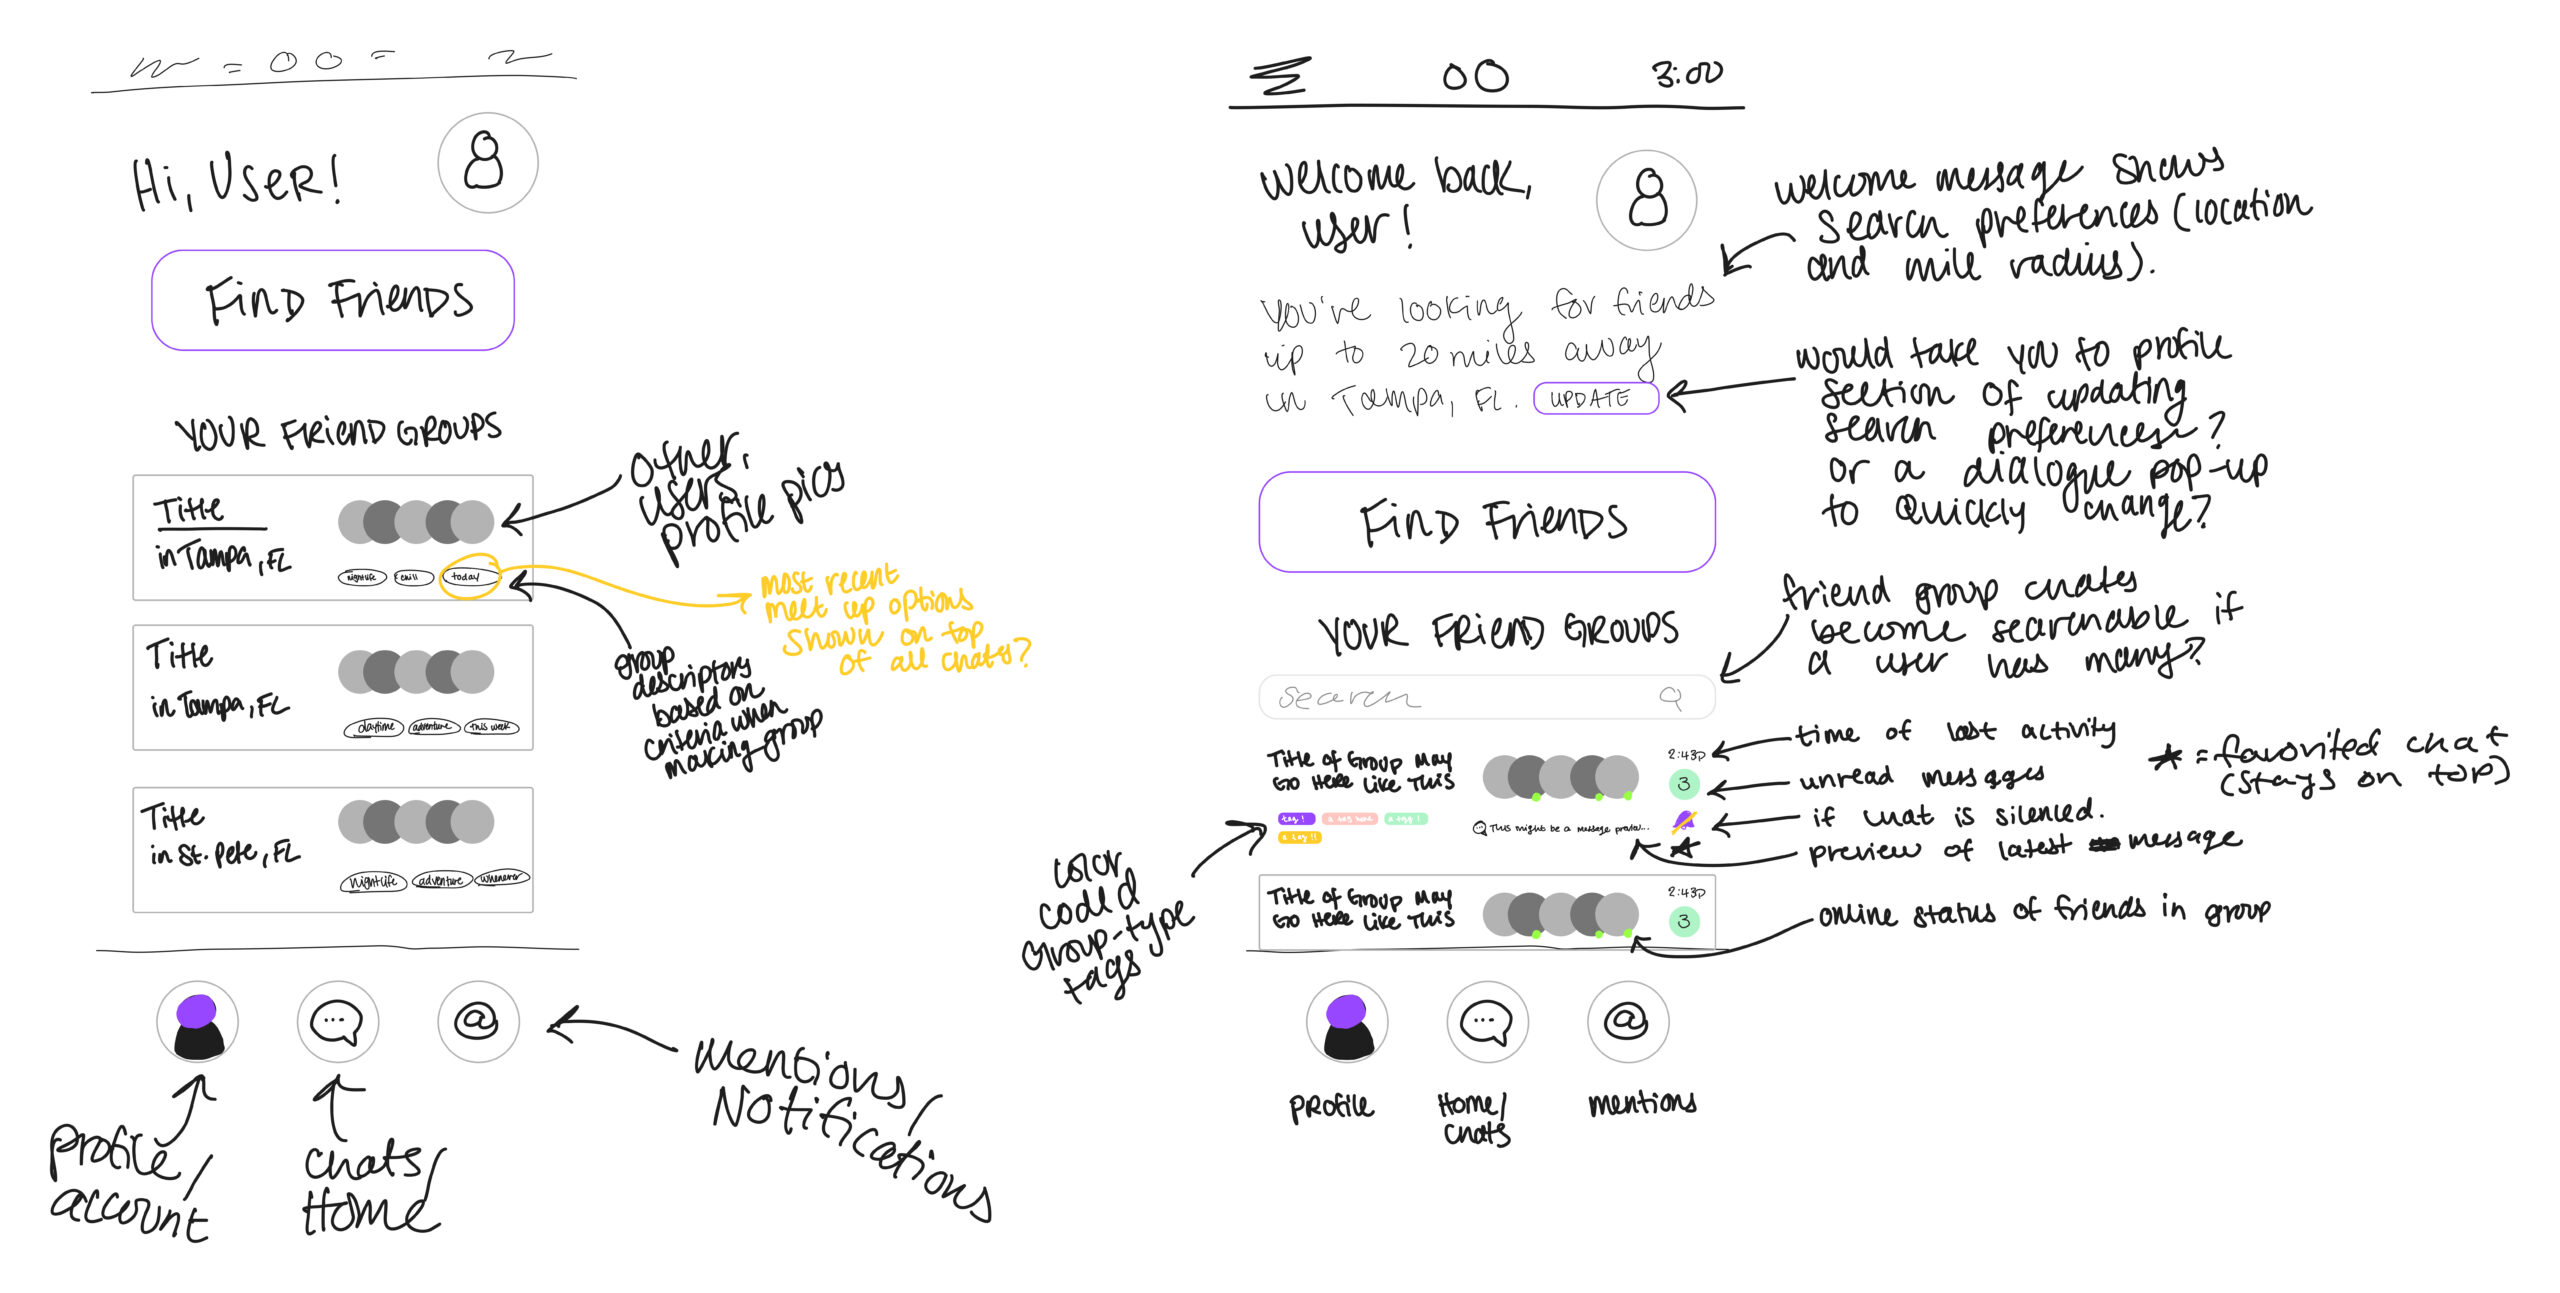 Hi, User!
Find Friends
Your Friend Groups
Title
in Tampa, FL
nightlife
chill
today
Title
in Tampa, FL
daytime
adventure
this week
Title
in St. Pete, FL
Nightlife
adventure
whenever
other
users
profile pics
most recent
meet up options
shown on top
of all chats?
group
descriptors
based on
criteria when
making group
profile/
account
chats/
Home
Mentions/
Notifications
3:00
Welcome back,
user!
You're looking for friends
up to 20 miles away
in Tampa, FL. UPDATE
Find Friends
Your Friend Groups
Search
Title of Group May
Go Here Like This
2:43P
3
tag!
a tag here
a tag!
a tag!!
This might be a message preview...
Title of Group May
Go Here Like This
2:43P
3
Profile
Home/
Chats
Mentions
color
coded
Group-type
tags
welcome message shows
search preferences (location
and mile radius).
would take you to profile
section of updating
search preferences?
or a dialogue pop-up
to Quickly change?
friend group chats
become searchable if
a user has many?
time of last activity
unread messages
if chat is silenced.
preview of latest message
online status of friends in group
★ = favorited chat
(stays on top)